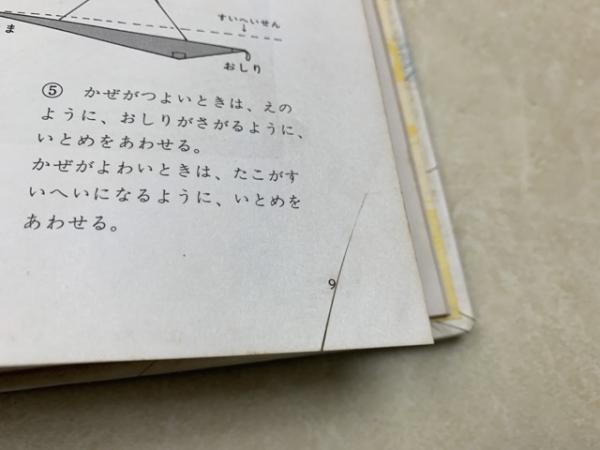 すいへいせん
ま
おしり
⑤ かぜがつよいときは、えの
ように、おしりがさがるように、
いとめをあわせる。
かぜがよわいときは、たこがす
いへいになるように、いとめを
あわせる。
9